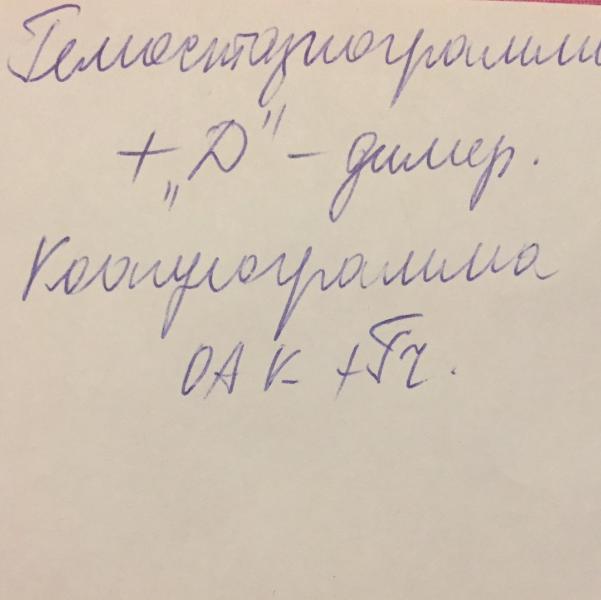 Гемостазиограмма
+ „Д" - димер.
Коагулограмма
ОАК + Тч.